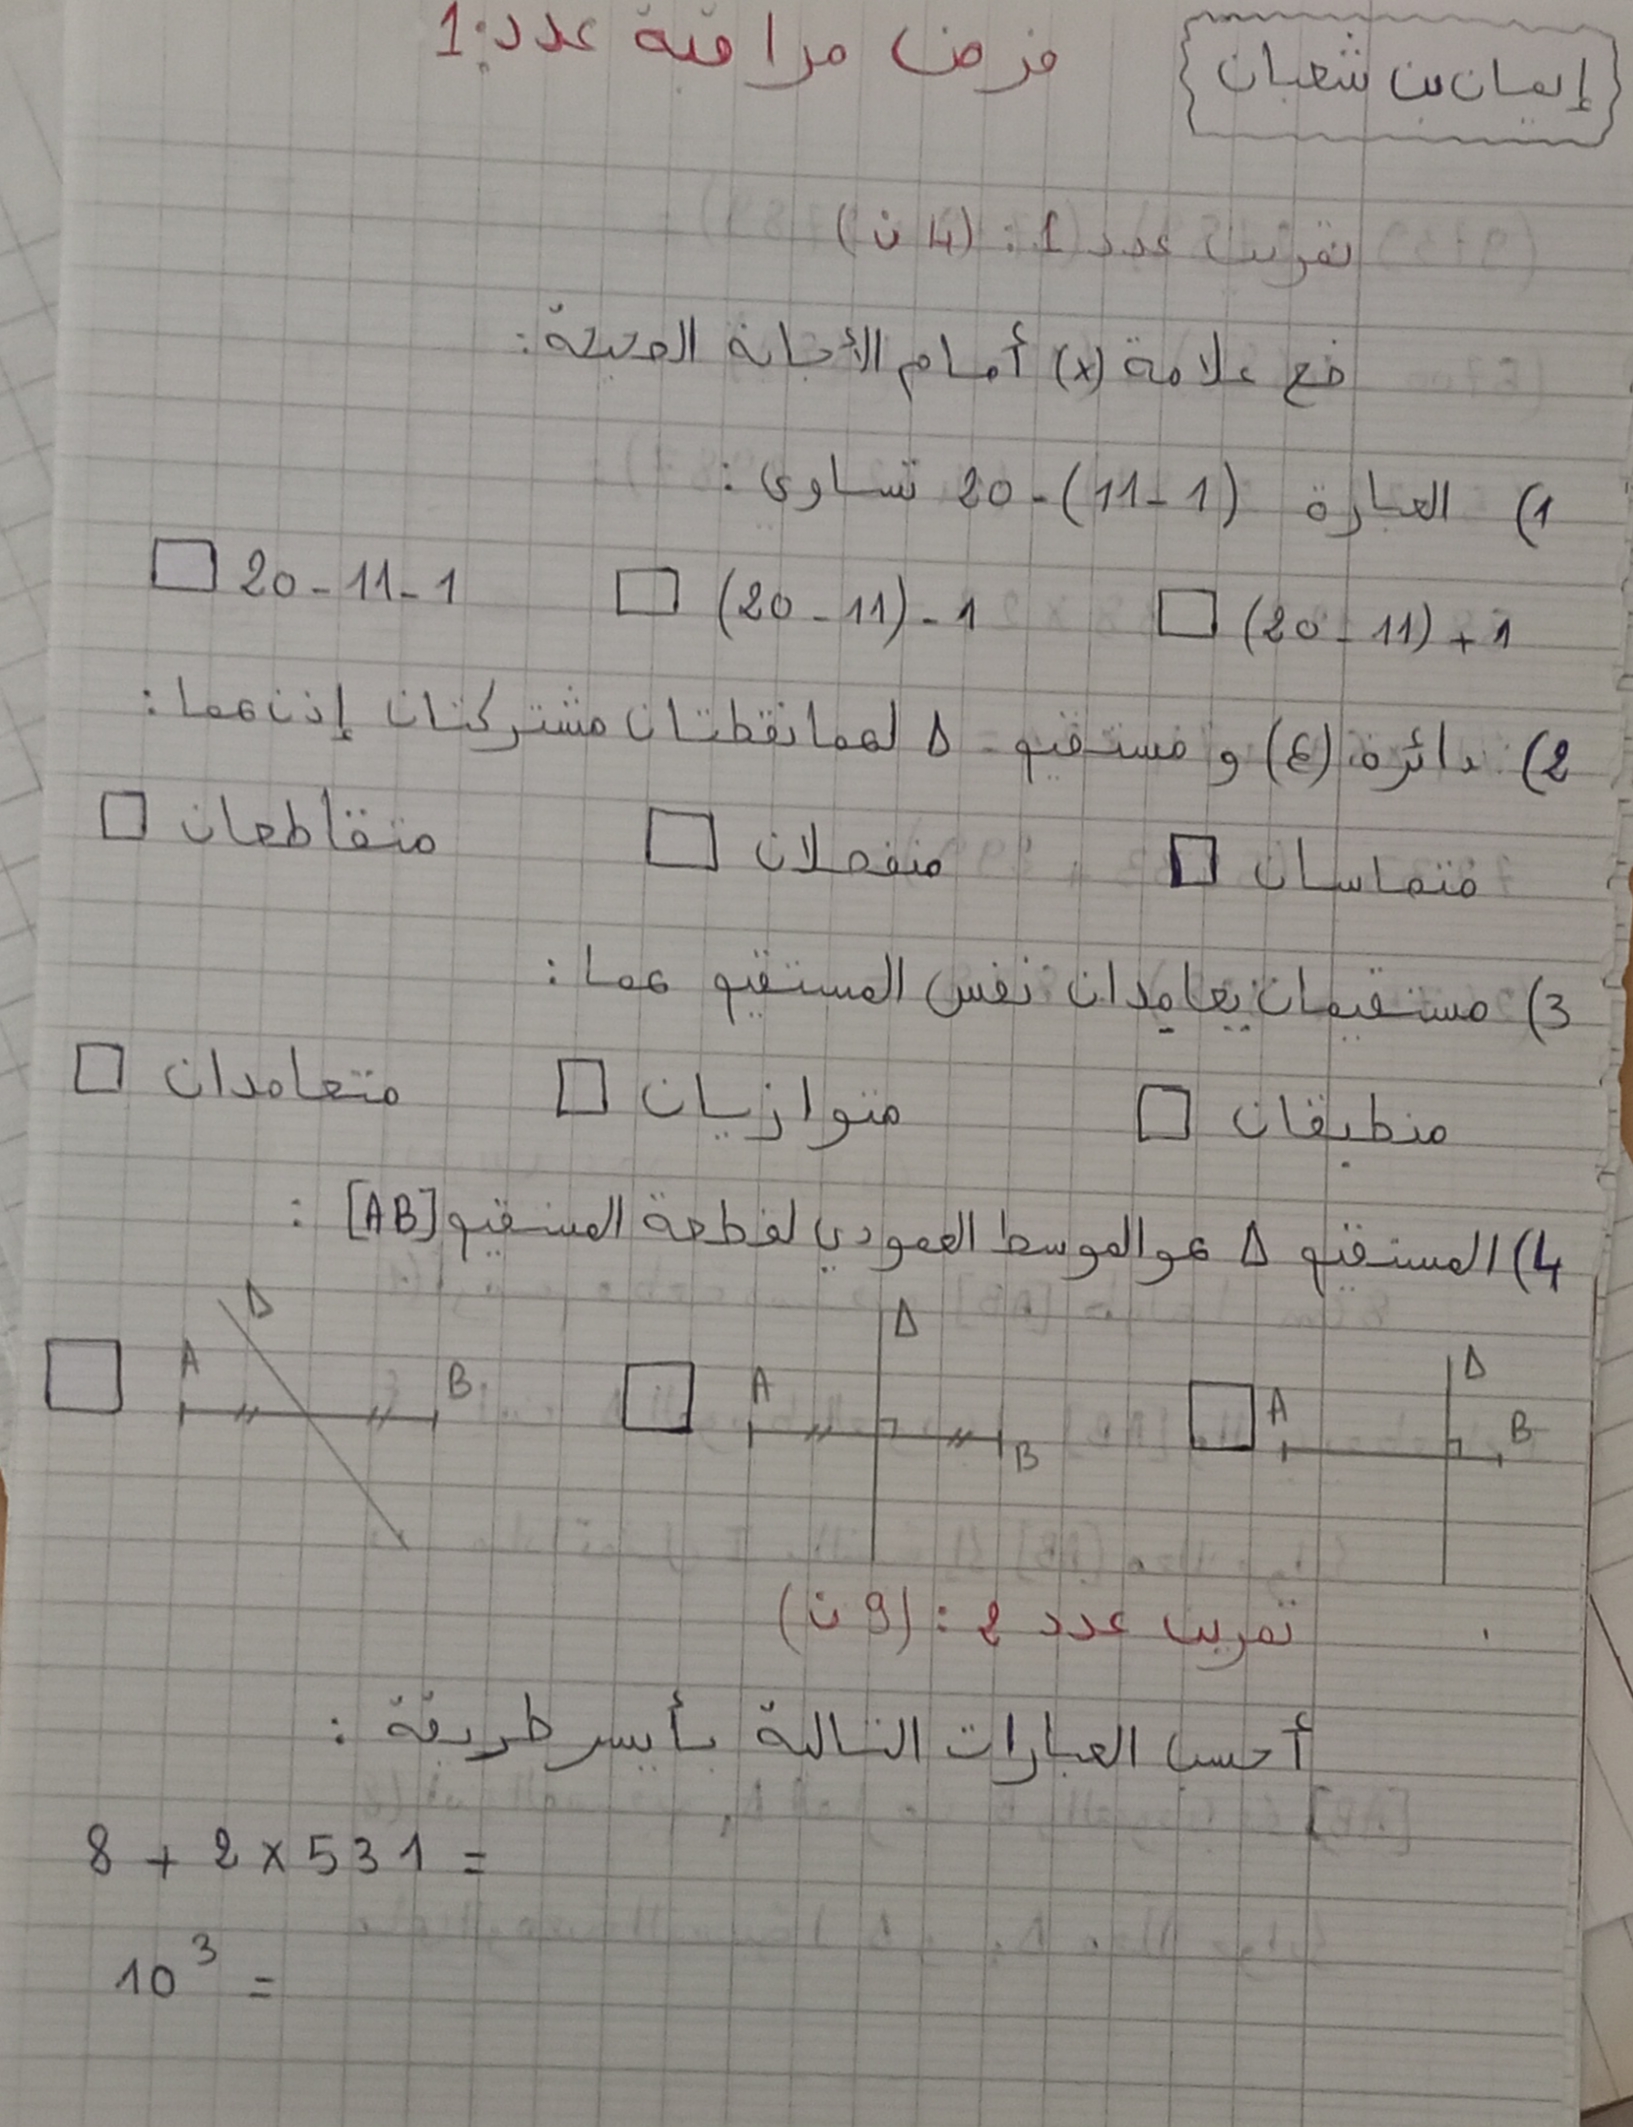 إيمان بن شعبان
فرض مراقبة عدد: 1
تمرين عدد 1: (4 ن)
ضع علامة (x) أمام الأجابة الصحيحة:
1) العبارة 20-(11-1) تساوي:
20-11-1 (20-11)-1 (20-11)+1
2) دائرة (C) و مستقيم Δ لهما نقطتان مشتركتان إذن هما:
متقاطعان منفصلان متماسان
3) مستقيمان يعامدان نفس المستقيم هما:
متعامدان متوازيان منطبقان
4) المستقيم Δ هو الموسط العمودي لقطعة المستقيم [AB]:
A Δ B A Δ B A Δ B
تمرين عدد 2: (9 ن)
أحسب العبارات التالية بأيسر طريقة:
8 + 2 x 531 =
10³ =